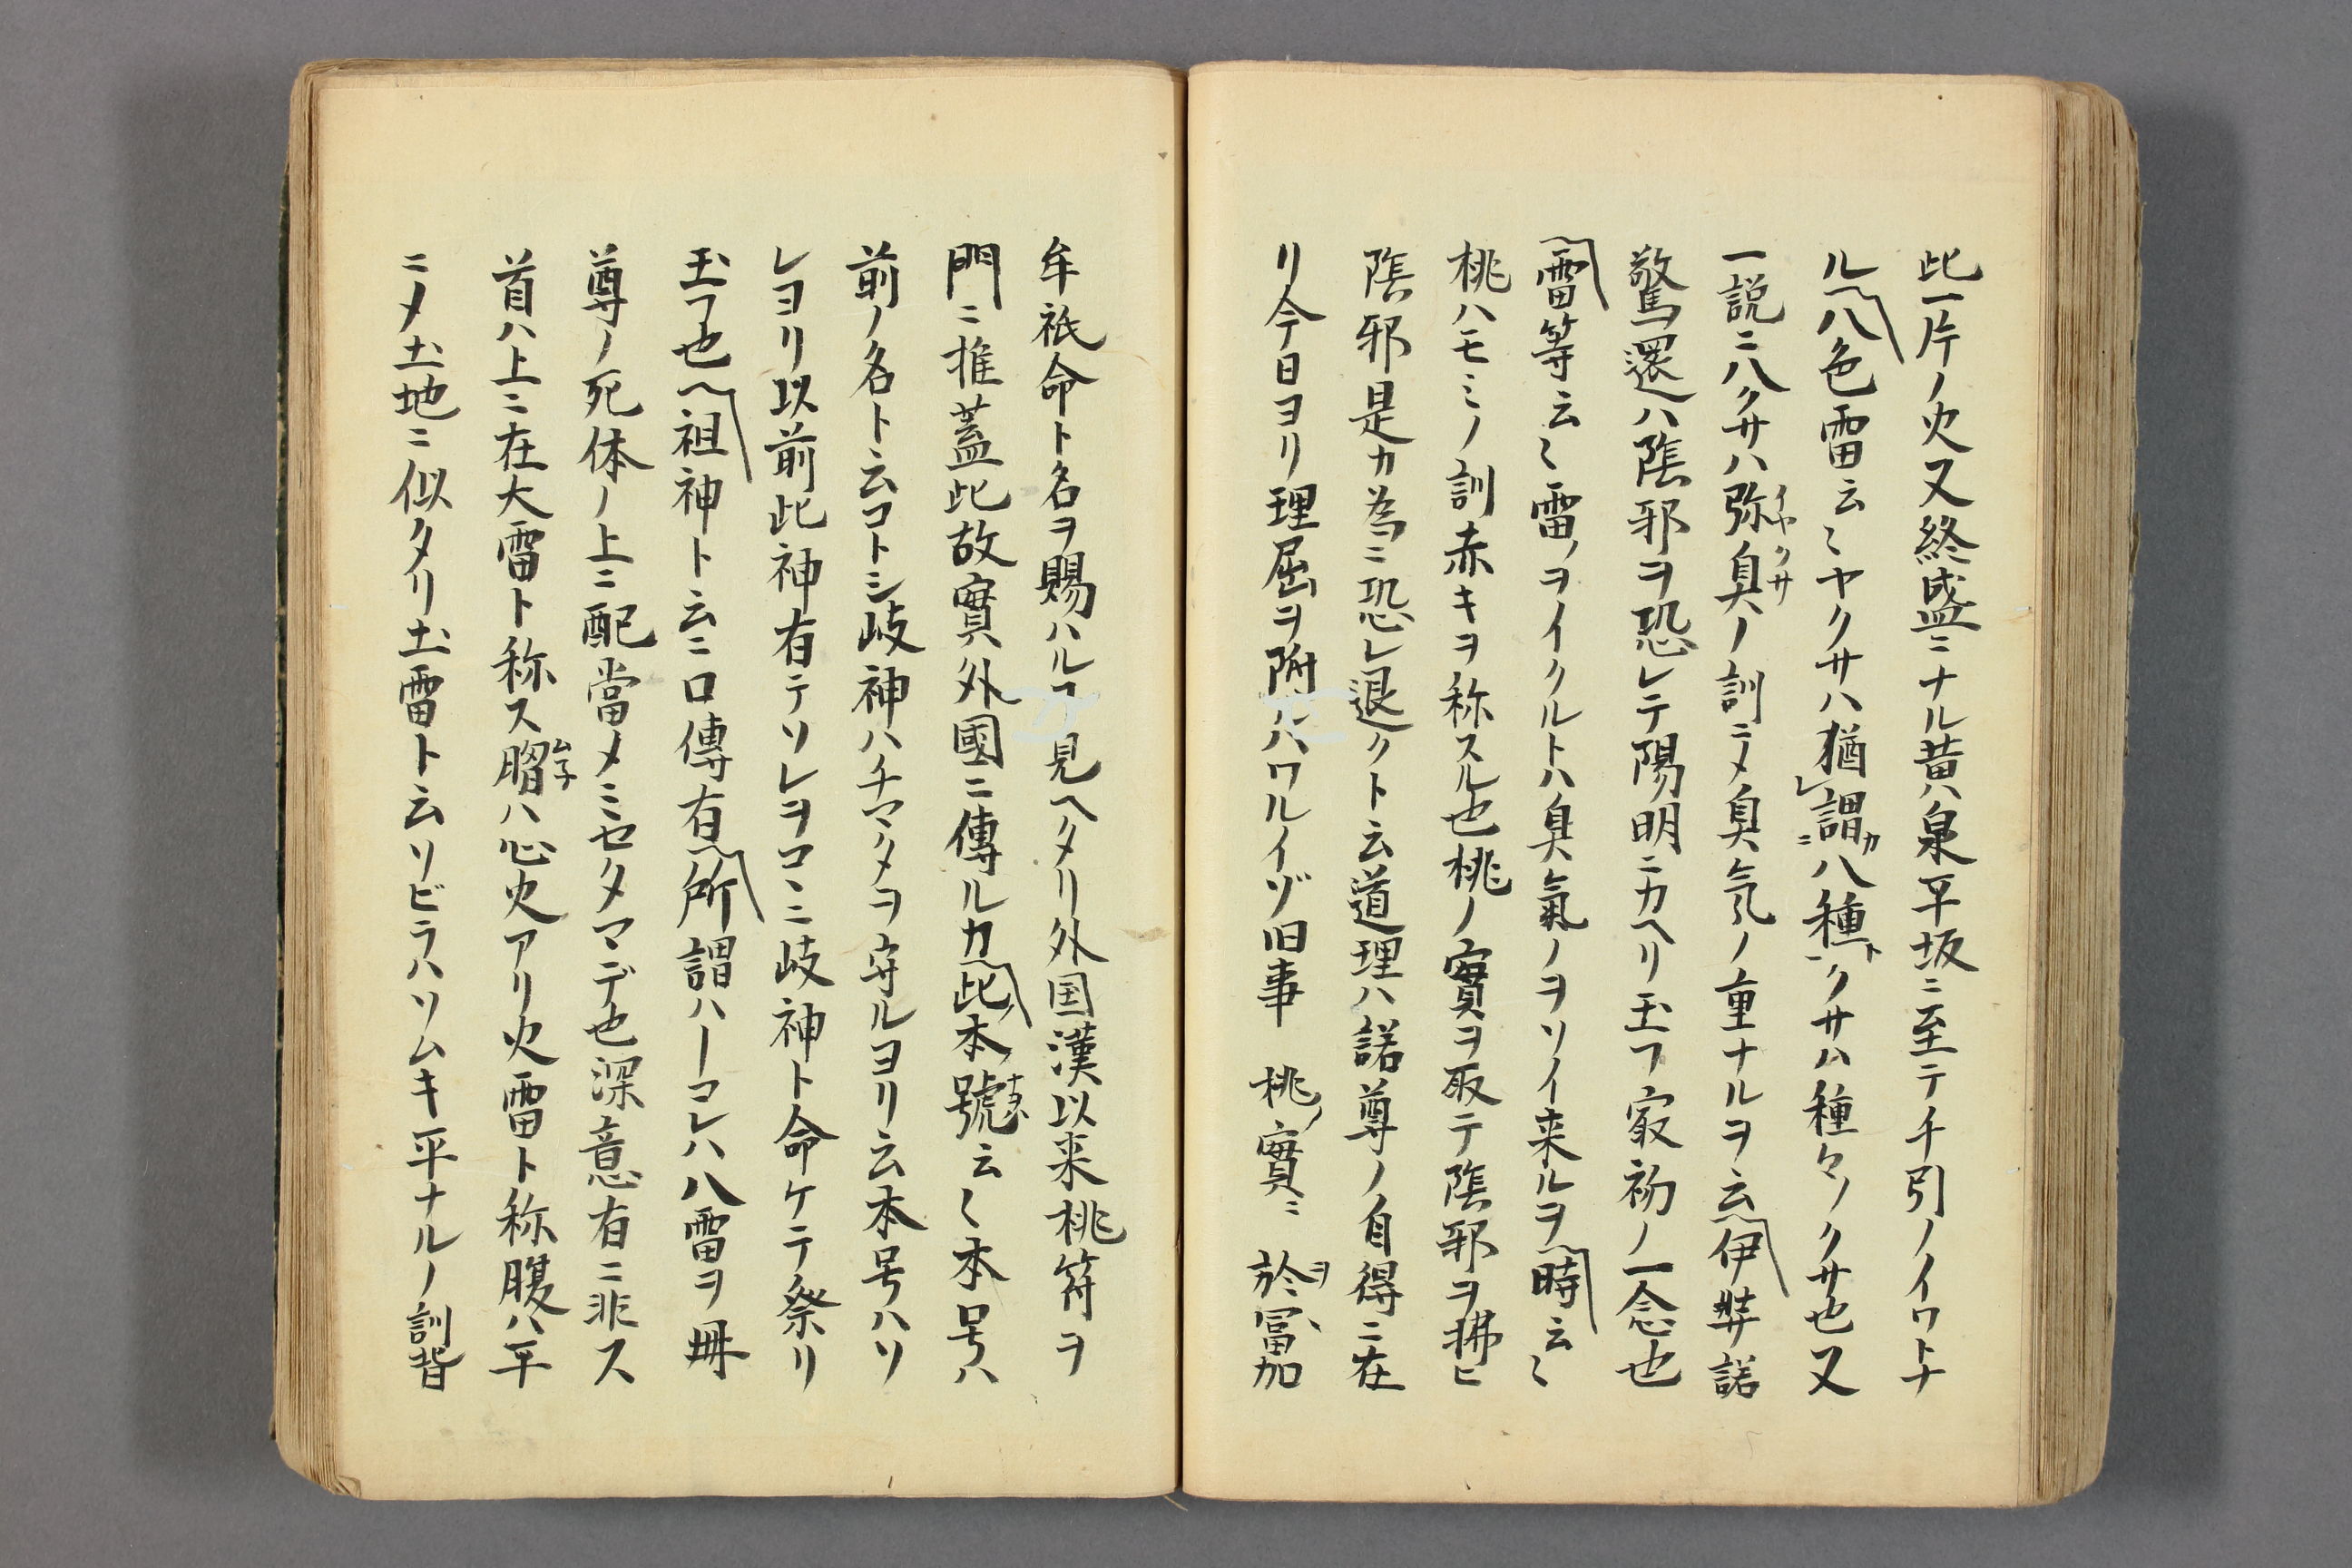 此一片ノ火又終盛ニナル黄泉平坂ニ至テチ引ノイワトナ
ル八色雷云〻ヤクサハ猶レ謂カニ八種ト一クサハ種々ノクサ也又
一説ニ八クサハ弥臭イヤクサノ訓ニメ臭気ノ重ナルヲ云伊弉諾
驚還ハ陰邪ヲ恐レテ陽明ニカヘリ玉フ最初ノ一念也
雷等云〻雷ノヲイクルトハ臭氣ノヲソイ来ルヲ時云〻
桃ハモミノ訓赤キヲ称スル也桃ノ實ヲ取テ陰邪ヲ拂ヒ
陰邪是カ為ニ恐レ退クト云道理ハ諾尊ノ自得ニ在
リ今日ヨリ理屈ヲ附ハワルイゾ旧事 桃ノ實ニ 於ヲ冨加
牟祇命ト名ヲ賜ハルヿ見ヘタリ外国漢以来桃符ヲ
門ニ推蓋此故實外國ニ傳ルカ此本ノ號ナハ云〻本号ハ
前ノ名ト云コトシ岐神ハチマタメヲ守ルヨリ云本号ハソ
レヨリ以前此神有テソレヲコヽニ岐神ト命ケテ祭リ
玉フ也祖神ト云ニ口傳有所謂ハーコレハ八雷ヲ冊
尊ノ死体ノ上ニ配當メミセタマデ也深意有ニ非ス
首ハ上ニ在大雷ト称ス胸ムネハ心火アリ火雷ト称腹ハ平
ニメ土地ニ似タリ土雷ト云ソビラハソムキ平ナルノ訓背